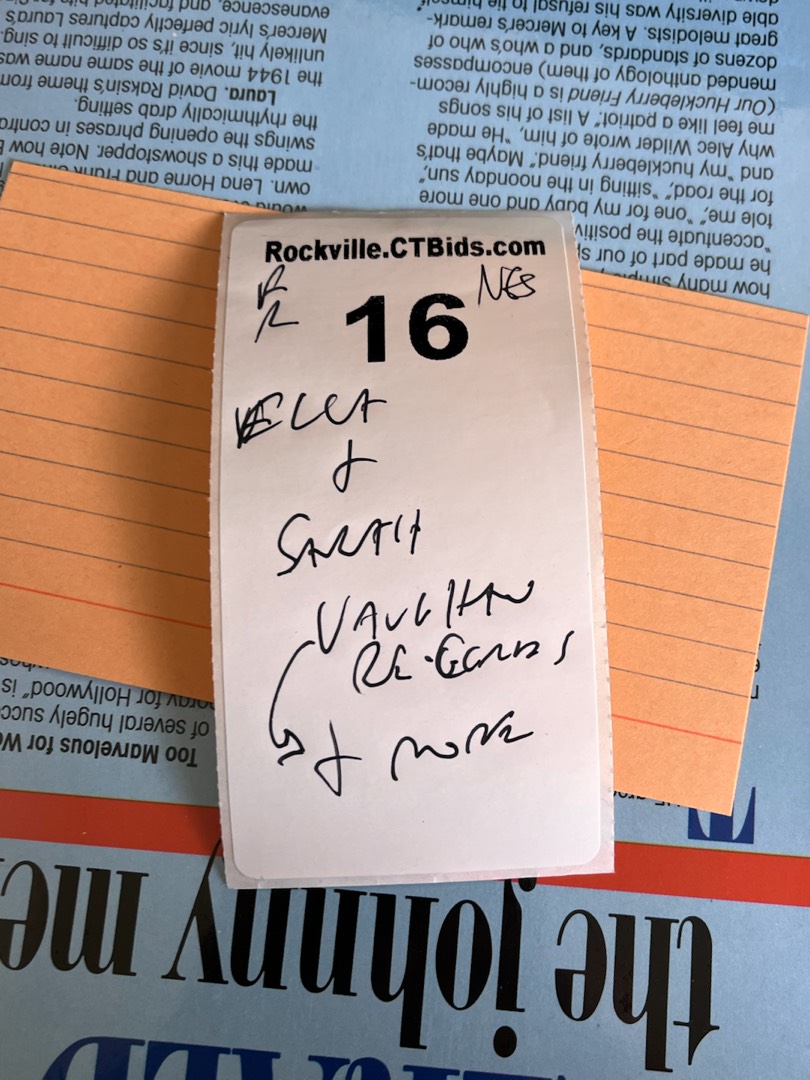 Rockville.CTBids.com
R NES
R 16
ELLA
&
SARAH
VAUGHAN
RECORDS
& MORE
how many simple
he made part of our sp
"accentuate the positiv
tole me," "one for my baby and one more
for the road," "sitting in the noonday sun,"
and "my huckleberry friend." Maybe that's
why Alec Wilder wrote of him, "He made
me feel like a patriot." A list of his songs
(Our Huckleberry Friend is a highly recom-
mended anthology of them) encompasses
dozens of standards, and a who's who of
great melodists. A key to Mercer's remark-
able diversity was his refusal to tie himself
own. Lena Horne and Frank
made this a showstopper. Note how
swings the opening phrases in contra
the rhythmically drab setting.
Laura. David Raksin's theme from
the 1944 movie of the same name was
unlikely hit, since it's so difficult to sing.
Mercer's lyric perfectly captures Laura's
evanescence, and facilitated
the johnny me
Too Marvelous for Wo
of several hugely succ
for Hollywood" is